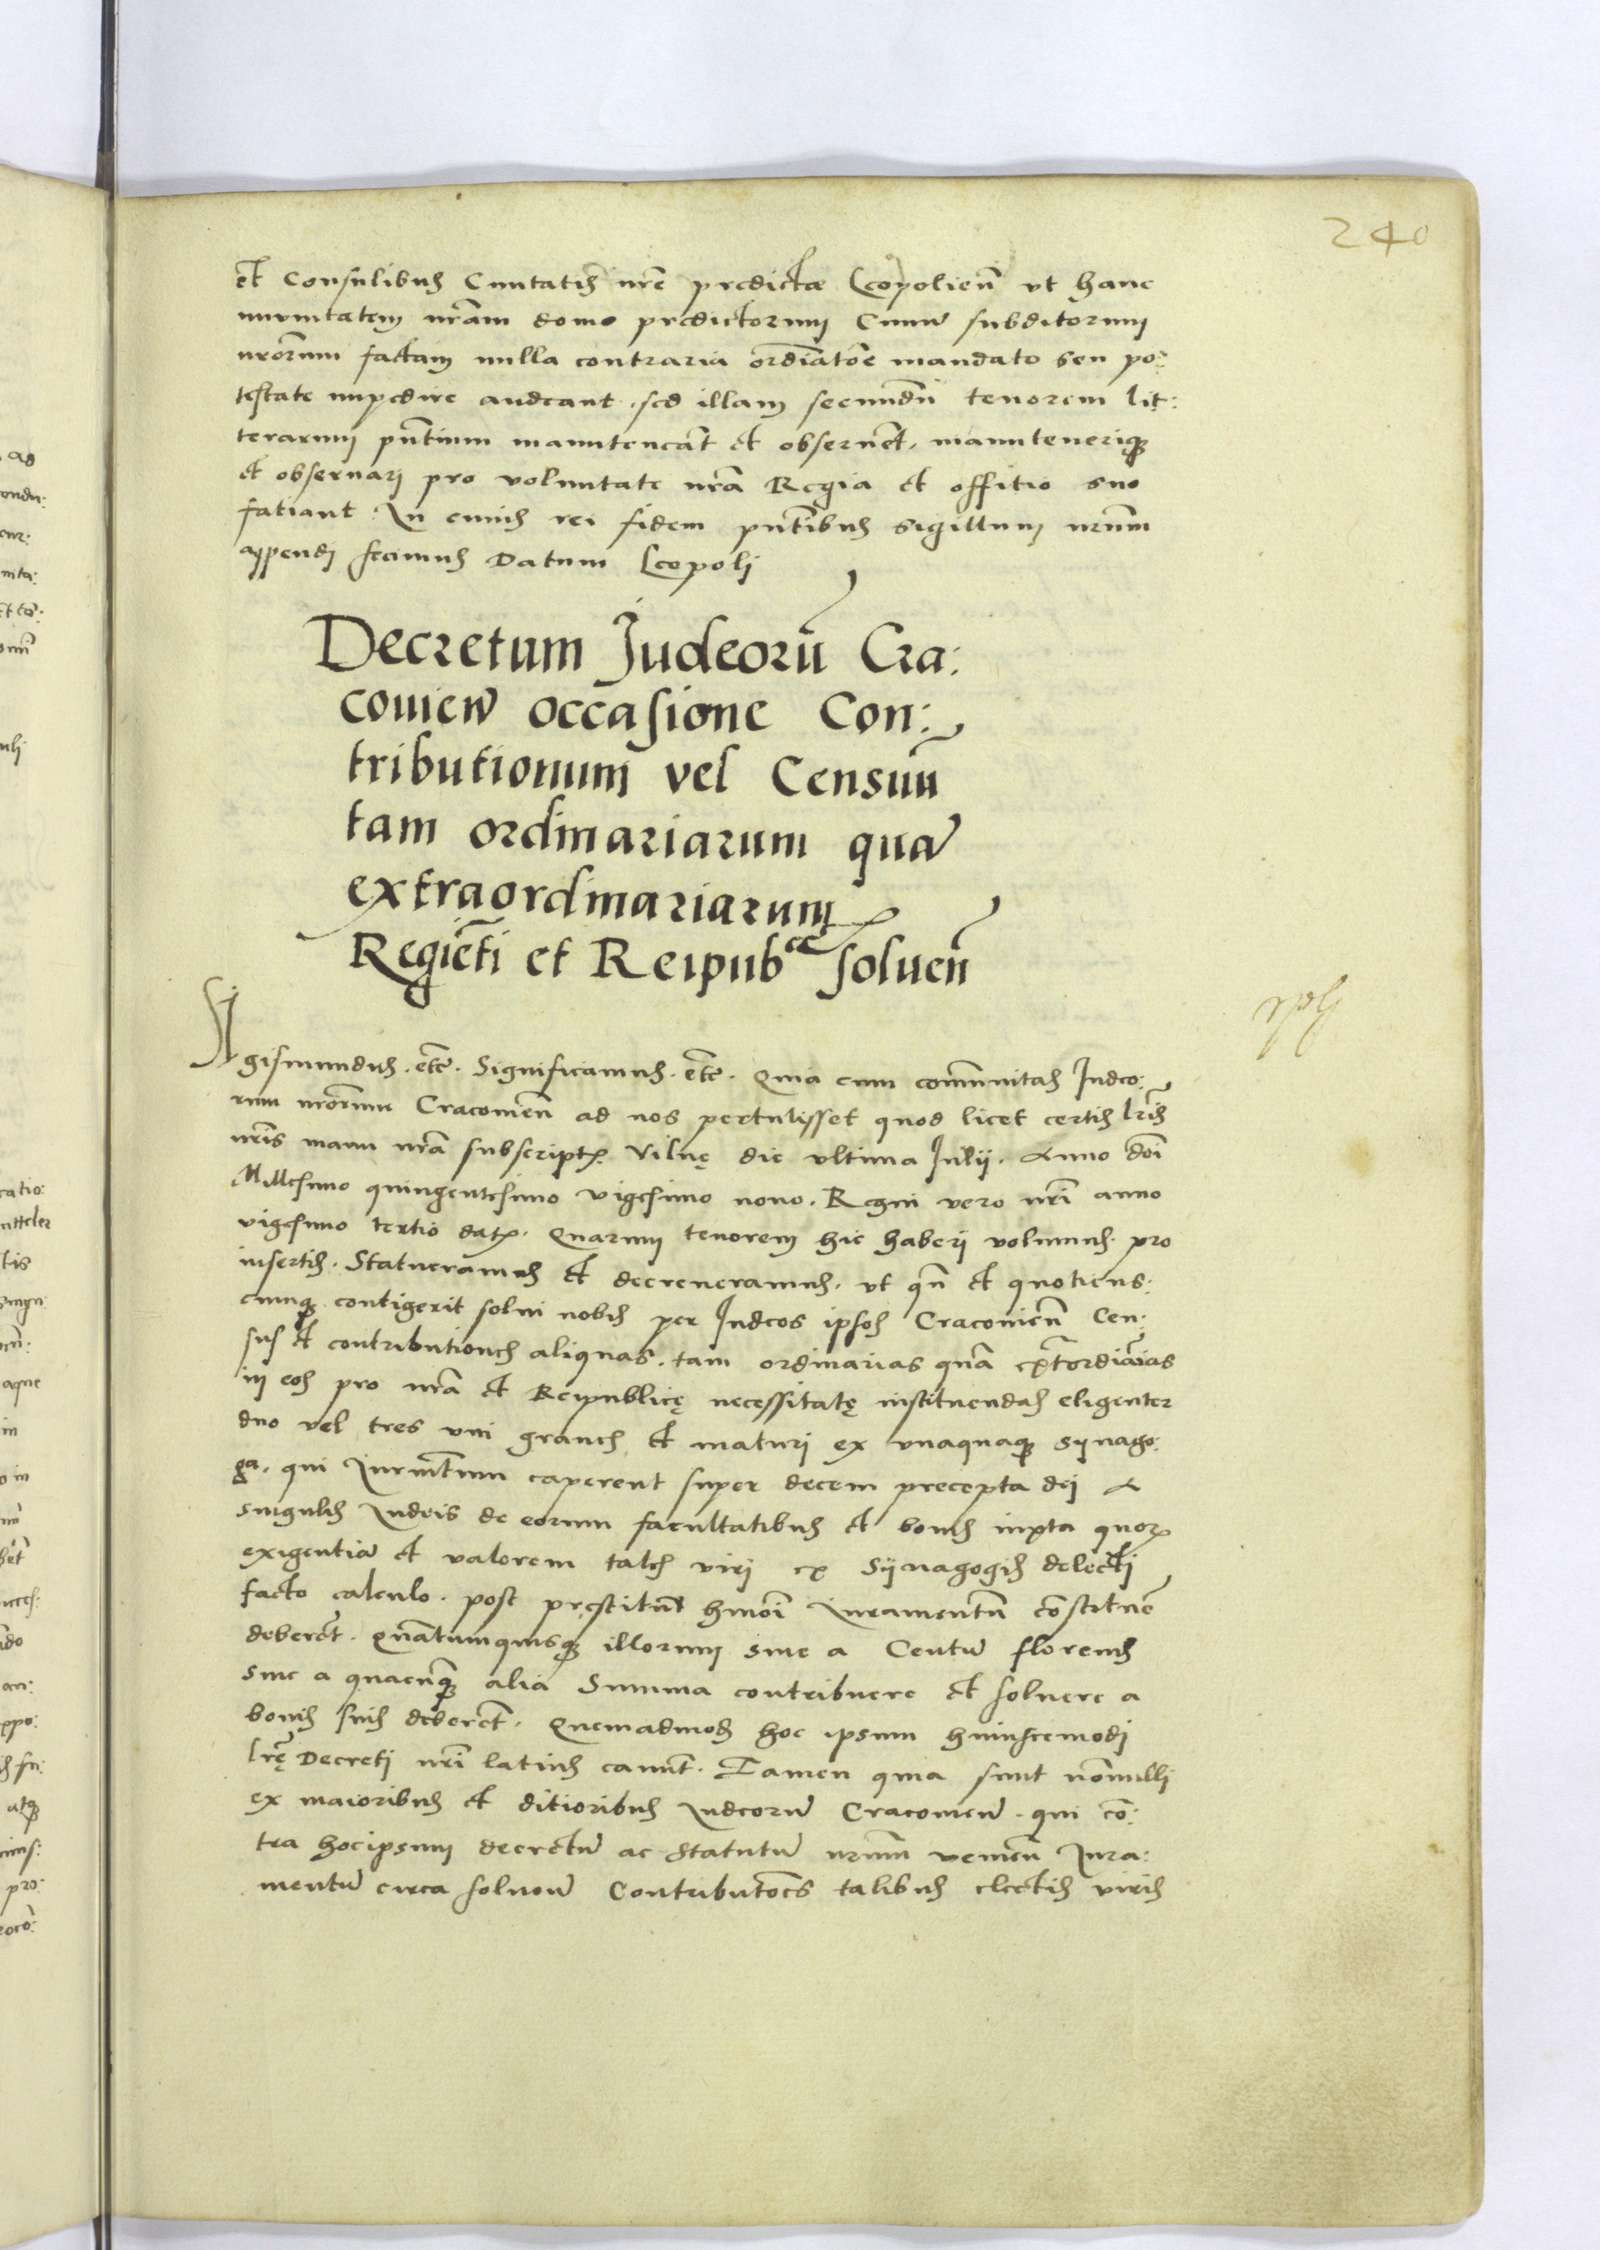 240
et Consulibus Ciuitatis nre predictæ Leopolien̄ vt hanc
inmunitatem nram domo predictorum Ciuiu subditorum
nrorum factam nulla contraria ordiatoe mandato seu po:
testate impedire audeant. sed illam secundu tenorem lit:
terarum pntium manuteneat et obseruet. manutenerique
et obseruari pro voluntate nra Regia et offitio suo
fatiant. In cuius rei fidem pntibus sigillum nrum
appendi fecimus Datum Leopoli
Decretum Judeorū Cra:
couien̄ occasione Con:
tributionum vel Censuū
tam ordinariarum qua
extraordinariarum
Regieti et Reipubce soluen̄
Sigismundus. etc. Significamus. etc. Quia cum communitas Judeo:
rum nrorum Cracouien̄ ad nos pertulisset quod licet certis lris
nris manu nra subscriptis Vilnę die vltima Julij. Anno dni
Millesimo quingentesimo vigesimo nono. Regni vero nri anno
vigesimo tertio datis. Quarum tenorem hic haberi volumus pro
insertis. Statueramus et decreueramus. vt qn et quotiens:
cumque contigerit solui nobis per Judeos ipsos Cracouien̄ Cen:
sus et contributiones aliquas. tam ordinarias qua extordiarias
in eos pro nra et Reipublicę necessitatę instituendas eligenter
duo vel tres viri graues et maturi ex vnaquaque synago:
ga. qui Jurmtum caperent super decem precepta dei &
singulis Judeis de eorum facultatibus et bonis iuxta quorum
exigentia et valorem tales viri ex Synagogis delecti
facto calculo. post prestitut hmoi Juramentu constitue
deberet. Quantumquisque illorum siue a Centu florenis
siue a quacunque alia Summa contribuere et soluere a
bonis suis deberet. Quemadmod hoc ipsum huiuscemodi
lrę Decreti nri latius canut. Tamen quia sunt nonnulli
ex maioribus et ditioribus Judeoru Cracouien̄. qui co:
tra hocipsum decretu ac statutu nrum venien Jura:
mentu circa soluen Contributoes talibus electis viris